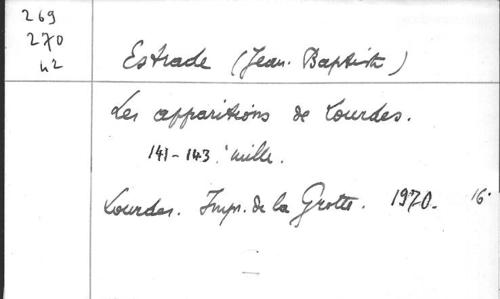 269
270
42
Estrade (Jean-Baptiste)
Les apparitions de Lourdes.
141-143. mille.
Lourdes. Impr. de la Grotte. 1970. 16°